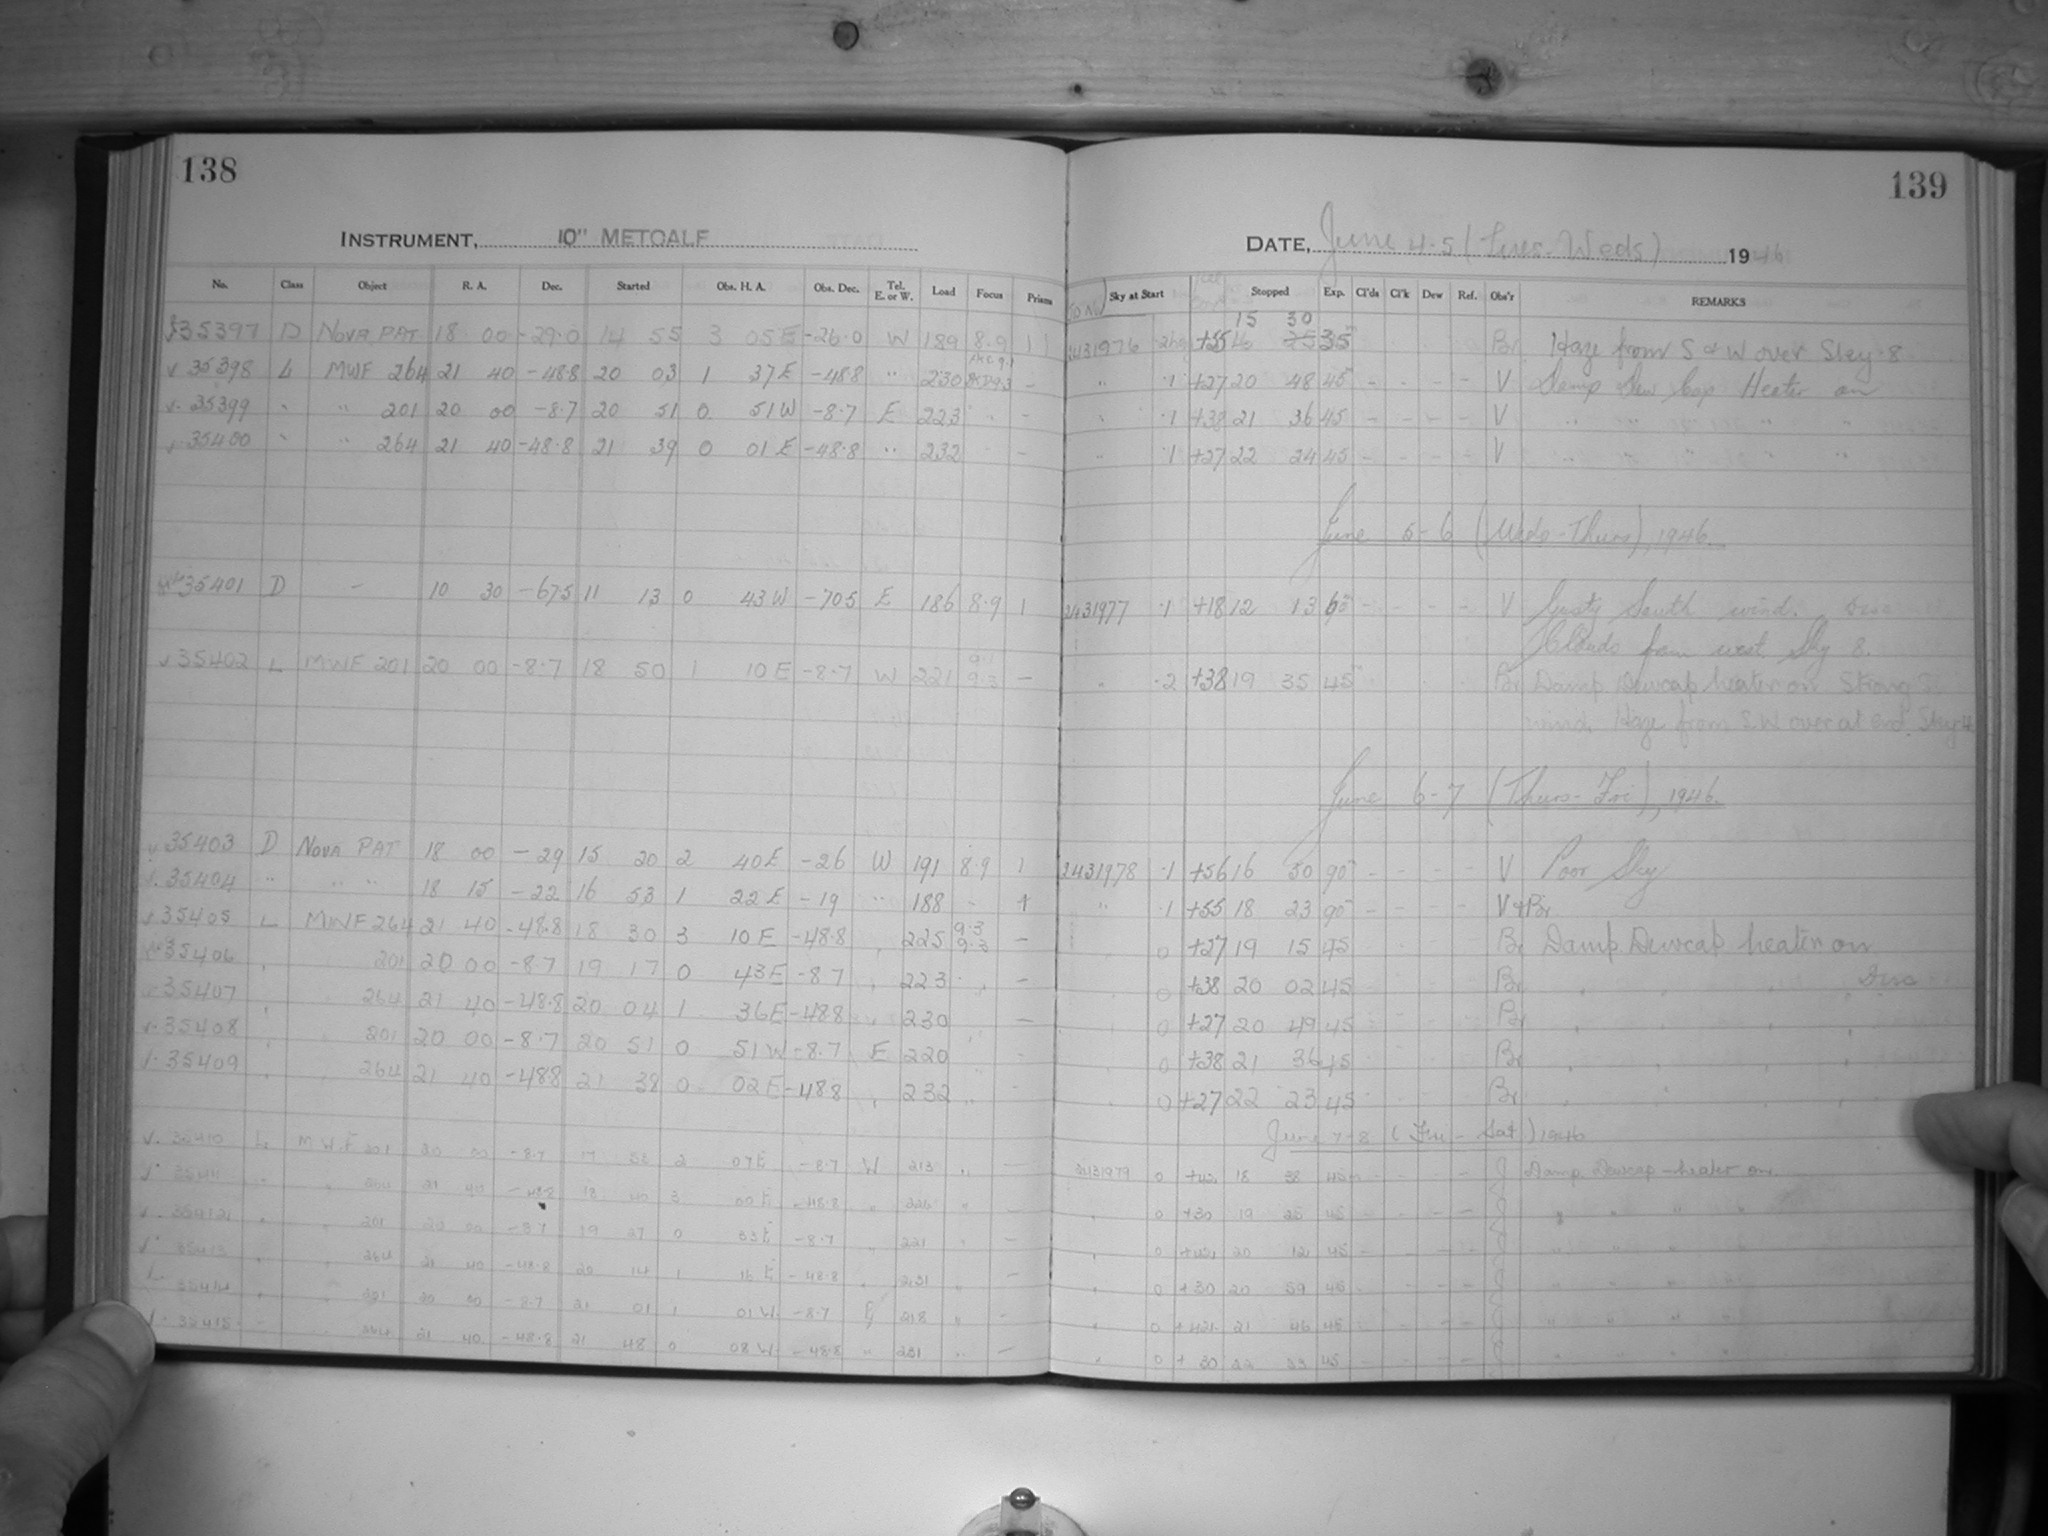 138
INSTRUMENT, 10" METCALF
No. Class Object R. A. Dec. Started Obs. H. A. Obs. Dec. Tel. E. or W. Load Focus Prism
35397 D NOVA PAT 18 00 -29.0 14 55 3 05E -26.0 W 189 8.9 1
v 35398 L MWF 264 21 40 -48.8 20 03 1 37E -48.8 " 230 -
v. 35399 " " 201 20 00 -8.7 20 51 0 51W -8.7 E 223 -
v 35400 " " 264 21 40 -48.8 21 39 0 01E -48.8 " 232 -
35401 D - 10 30 -67.5 11 13 0 43W -70.5 E 186 8.9 1
v 35402 L MWF 201 20 00 -8.7 18 50 1 10E -8.7 W 221 9.3 -
v 35403 D NOVA PAT 18 00 -29 15 20 2 40E -26 W 191 8.9 1
v. 35404 " " " 18 15 -22 16 53 1 22E -19 " 188 - 1
v 35405 L MWF 264 21 40 -48.8 18 30 3 10E -48.8 " 225 9.3 9.3 -
35406 201 20 00 -8.7 19 17 0 43E -8.7 " 223 -
35407 264 21 40 -48.8 20 04 1 36E -48.8 230 -
v. 35408 201 20 00 -8.7 20 51 0 51W -8.7 E 220 -
v. 35409 264 21 40 -48.8 21 38 0 02E -48.8 232 -
v. 35410 L MWF 201 20 00 -8.7 17 53 2 07E -8.7 W 213 " -
v. 35411 264 21 40 -48.8 18 40 3 00E -48.8 " 226 " -
v. 35412 201 20 00 -8.7 19 27 0 33E -8.7 " 221 " -
v. 35413 264 21 40 -48.8 20 14 1 16E -48.8 231 " -
35414 201 20 00 -8.7 21 01 1 01W -8.7 E 218 " -
v. 35415 264 21 40 -48.8 21 48 0 08W -48.8 " 231 " -
139
DATE, June 4-5 (Tues-Weds) 1946
JD No Sky at Start Stopped Exp. Cl'ds Cl'k Dew Ref. Obs'r REMARKS
15 30
2431976 +55 16 35 Br Haze from S & W over Sky .8
" .1 +27 20 48 45 - - - - V Damp Dew Cap Heater on
" .1 +38 21 36 45 - - - - V " " " "
" .1 +27 22 24 45 - - - - V " " " "
June 5-6 (Weds-Thurs), 1946.
2431977 .1 +18 12 13 60 - - - - V Gusty South wind.
Clouds from west Sky 8.
" .2 +38 19 35 45 Br Damp Dewcap heater on Strong S
wind. Haze from S.W over at end. Sky 4
June 6-7 (Thurs-Fri), 1946.
2431978 .1 +56 16 50 90 - - - - V Poor Sky
" .1 +55 18 23 90 - - - - V+Br
0 +27 19 15 45 - - - - Br Damp. Dewcap heater on
0 +38 20 02 45 - - - - Br
0 +27 20 49 45 Br
0 +38 21 36 45 Br
0 +27 22 23 45 Br
June 7-8 (Fri-Sat) 1946
2431979 0 +42 18 38 45 - - - - J Damp. Dewcap-heater on.
0 +30 19 25 45 - - - - J " " " "
0 +42 20 12 45 - - - - J " " " "
0 +30 20 59 45 - - - - J " " " "
0 +42 21 46 45 - - - - J " " " "
0 +30 22 33 45 - - - - J " " " "